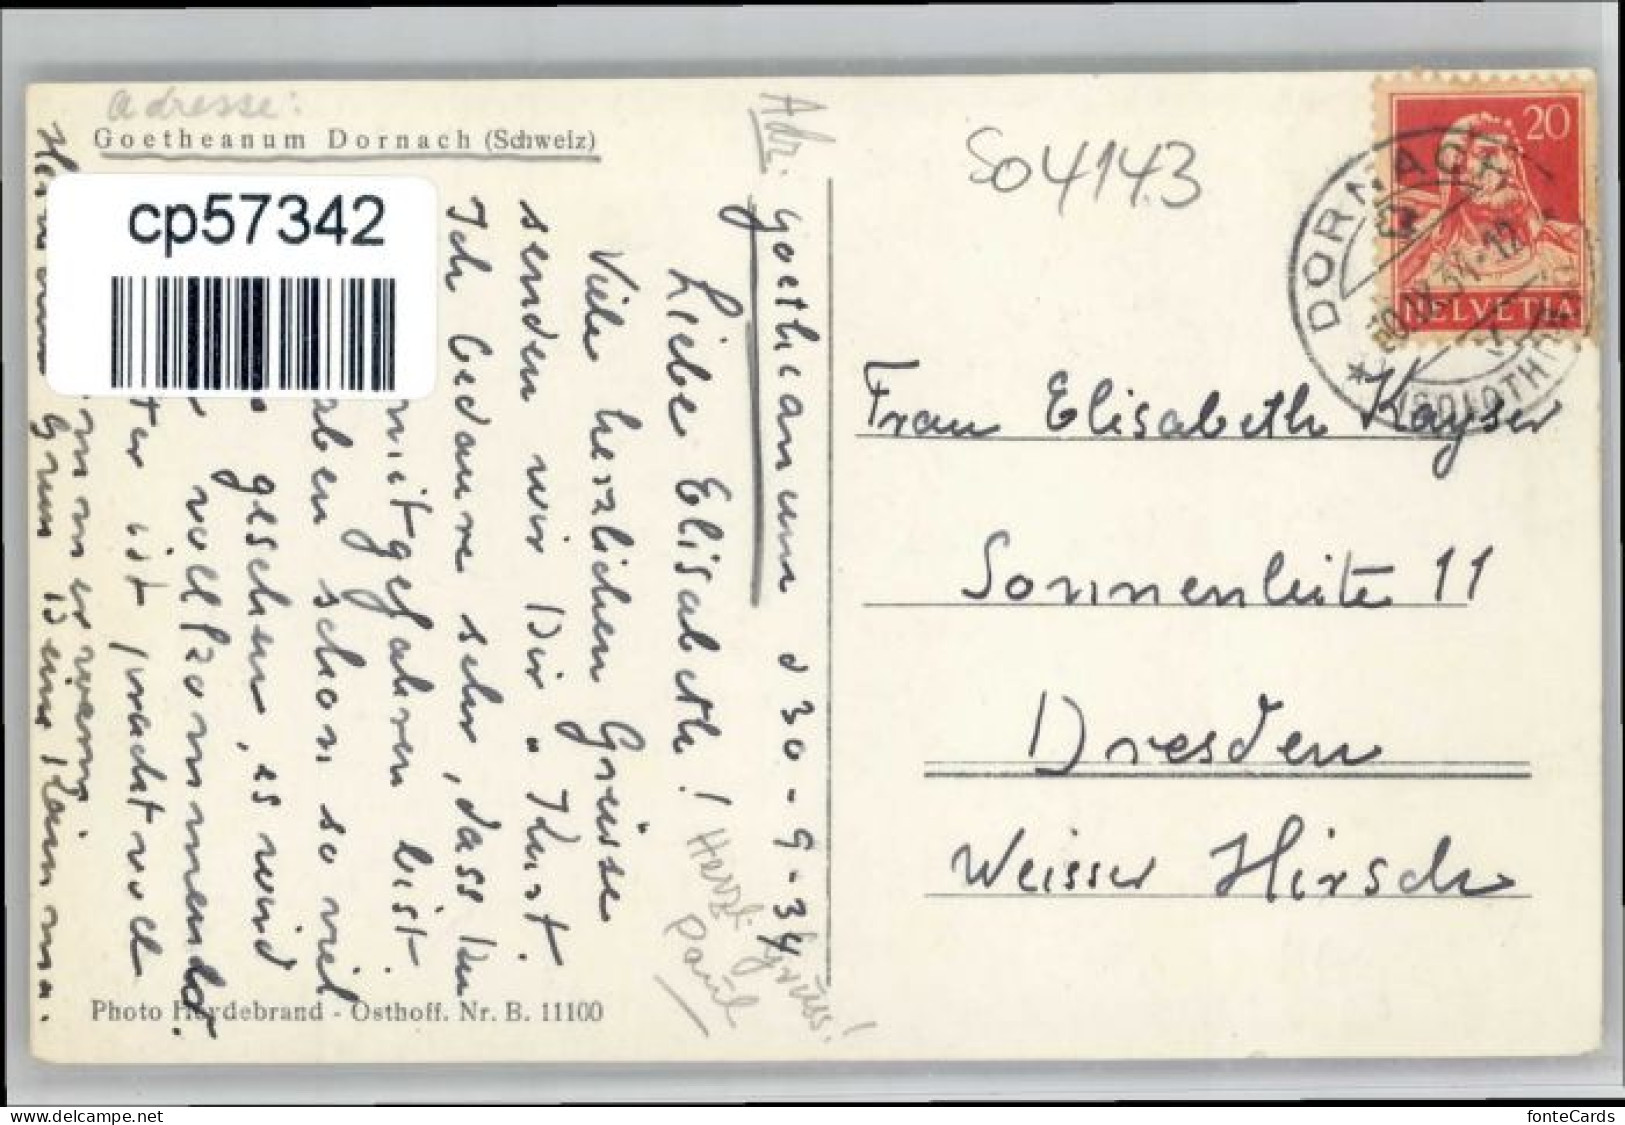 adresse:
Goetheanum Dornach (Schweiz)
cp57342
Adr.
Goetheanum d 30-9-34
Liebe Elisabeth!
Viele herzlichen Grüsse
senden wir Dir. Kurt.
Ich bedaure sehr, dass Du
mitgefahren bist.
aben schon so viel
gesehen, es wird
vollkommener.
ter ist prachtvoll
Gruss Deine
Herzl. Grüss!
Paul
Photo Heydebrand - Osthoff. Nr. B. 11100
So4143
20
HELVETIA
DORNACH
Frau Elisabeth Kayser
Sonnenleite 11
Dresden
Weisser Hirsch
fonteCards